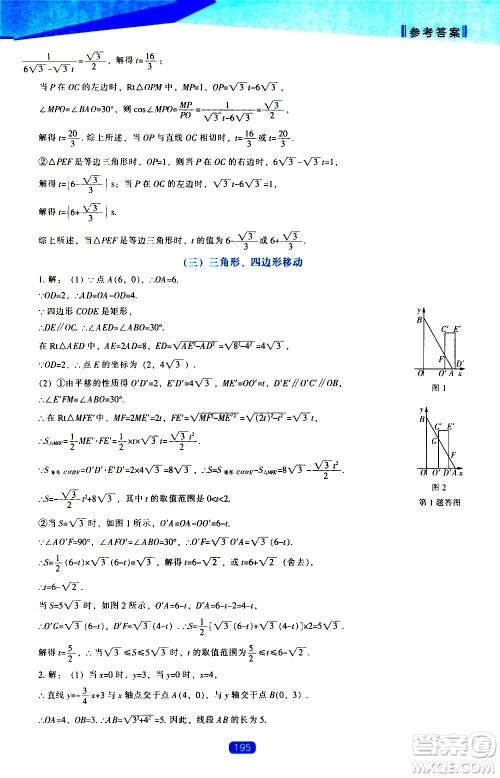 参考答案
$\frac{1}{6\sqrt{3}-\sqrt{3}t}=\frac{\sqrt{3}}{2}$，解得 t=$\frac{16}{3}$；
当 P 在 OC 的左边时，Rt△OPM 中，MP=1，OP=$\sqrt{3}$t-6$\sqrt{3}$，
∠MPO=∠BAO=30°，则 cos∠MPO=$\frac{MP}{PO}$=$\frac{1}{\sqrt{3}t-6\sqrt{3}}$=$\frac{\sqrt{3}}{2}$，
解得 t=$\frac{20}{3}$. 综上所述，当 OP 与直线 OC 相切时，t=$\frac{16}{3}$ 或 t=$\frac{20}{3}$.
②△PEF 是等边三角形时，OP=1，则当 P 在 OC 的右边时，6$\sqrt{3}$-$\sqrt{3}$t=1，
解得 t=(6-$\frac{\sqrt{3}}{3}$) s；当 P 在 OC 的左边时，$\sqrt{3}$t-6$\sqrt{3}$=1，
解得 t=(6+$\frac{\sqrt{3}}{3}$) s.
综上所述，当△PEF 是等边三角形时，t 的值为 6-$\frac{\sqrt{3}}{3}$ 或 6+$\frac{\sqrt{3}}{3}$.
（三）三角形、四边形移动
1. 解：（1）∵点 A（6，0），∴OA=6.
∵OD=2，∴AD=OA-OD=6-2=4.
∵四边形 CODE 是矩形，
∴DE∥OC. ∴∠AED=∠ABO=30°.
在 Rt△AED 中，AE=2AD=8，ED=$\sqrt{AE²-AD²}$=$\sqrt{8²-4²}$=4$\sqrt{3}$.
∵OD=2，∴点 E 的坐标为（2，4$\sqrt{3}$）.
（2）①由平移的性质得 O′D′=2，E′D′=4$\sqrt{3}$，ME′=OO′=t，D′E′∥O′C′∥OB，
∴∠E′FM=∠ABO=30°.
∴在 Rt△MFE′中，MF=2ME′=2t，FE′=$\sqrt{MF²-ME′²}$=$\sqrt{(2t)²-t²}$=$\sqrt{3}$t.
∴S△MFE′=$\frac{1}{2}$ME′·FE′=$\frac{1}{2}$×t×$\sqrt{3}$t=$\frac{\sqrt{3}t²}{2}$.
∵S矩形C′O′D′E′=O′D′·E′D′=2×4$\sqrt{3}$=8$\sqrt{3}$，∴S=S矩形C′O′D′E′-S△MFE′=8$\sqrt{3}$-$\frac{\sqrt{3}t²}{2}$.
∴S=-$\frac{\sqrt{3}}{2}$t²+8$\sqrt{3}$，其中 t 的取值范围是 0<t<2.
②当 S=$\sqrt{3}$时，如图 1 所示，O′A=OA-OO′=6-t.
∵∠AO′F=90°，∠AFO′=∠ABO=30°，∴O′F=$\sqrt{3}$O′A=$\sqrt{3}$(6-t).
∴S=$\frac{1}{2}$(6-t)×$\sqrt{3}$(6-t)=$\sqrt{3}$，解得 t=6-$\sqrt{2}$或 t=6+$\sqrt{2}$（舍去），
∴t=6-$\sqrt{2}$.
当 S=5$\sqrt{3}$时，如图 2 所示，O′A=6-t，D′A=6-t-2=4-t，
∴O′G=$\sqrt{3}$(6-t)，D′F=$\sqrt{3}$(4-t). ∴S=$\frac{1}{2}$[$\sqrt{3}$(6-t)+$\sqrt{3}$(4-t)]×2=5$\sqrt{3}$.
解得 t=$\frac{5}{2}$. ∴当$\sqrt{3}$≤S≤5$\sqrt{3}$时，t 的取值范围为$\frac{5}{2}$≤t≤6-$\sqrt{2}$.
2. 解：（1）当 x=0 时，y=3，当 y=0 时，x=4，
∴直线 y=-$\frac{3}{4}$x+3 与 x 轴交于点 A（4，0），与 y 轴交于点 B（0，3）.
∴OA=4，OB=3. ∴AB=$\sqrt{3²+4²}$=5. 因此，线段 AB 的长为 5.
y
B
C′ E′
F
O O′ A D′ x
图 1
y
B
C′ E′
G
O O′ D′ A x
图 2
第 1 题答图
195